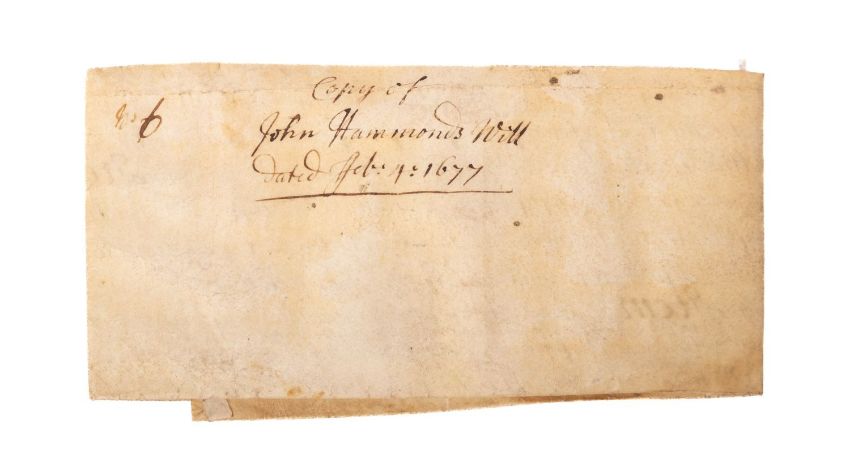 Copy of
No 6
John Hammonds Will
dated Feb: 4: 1677